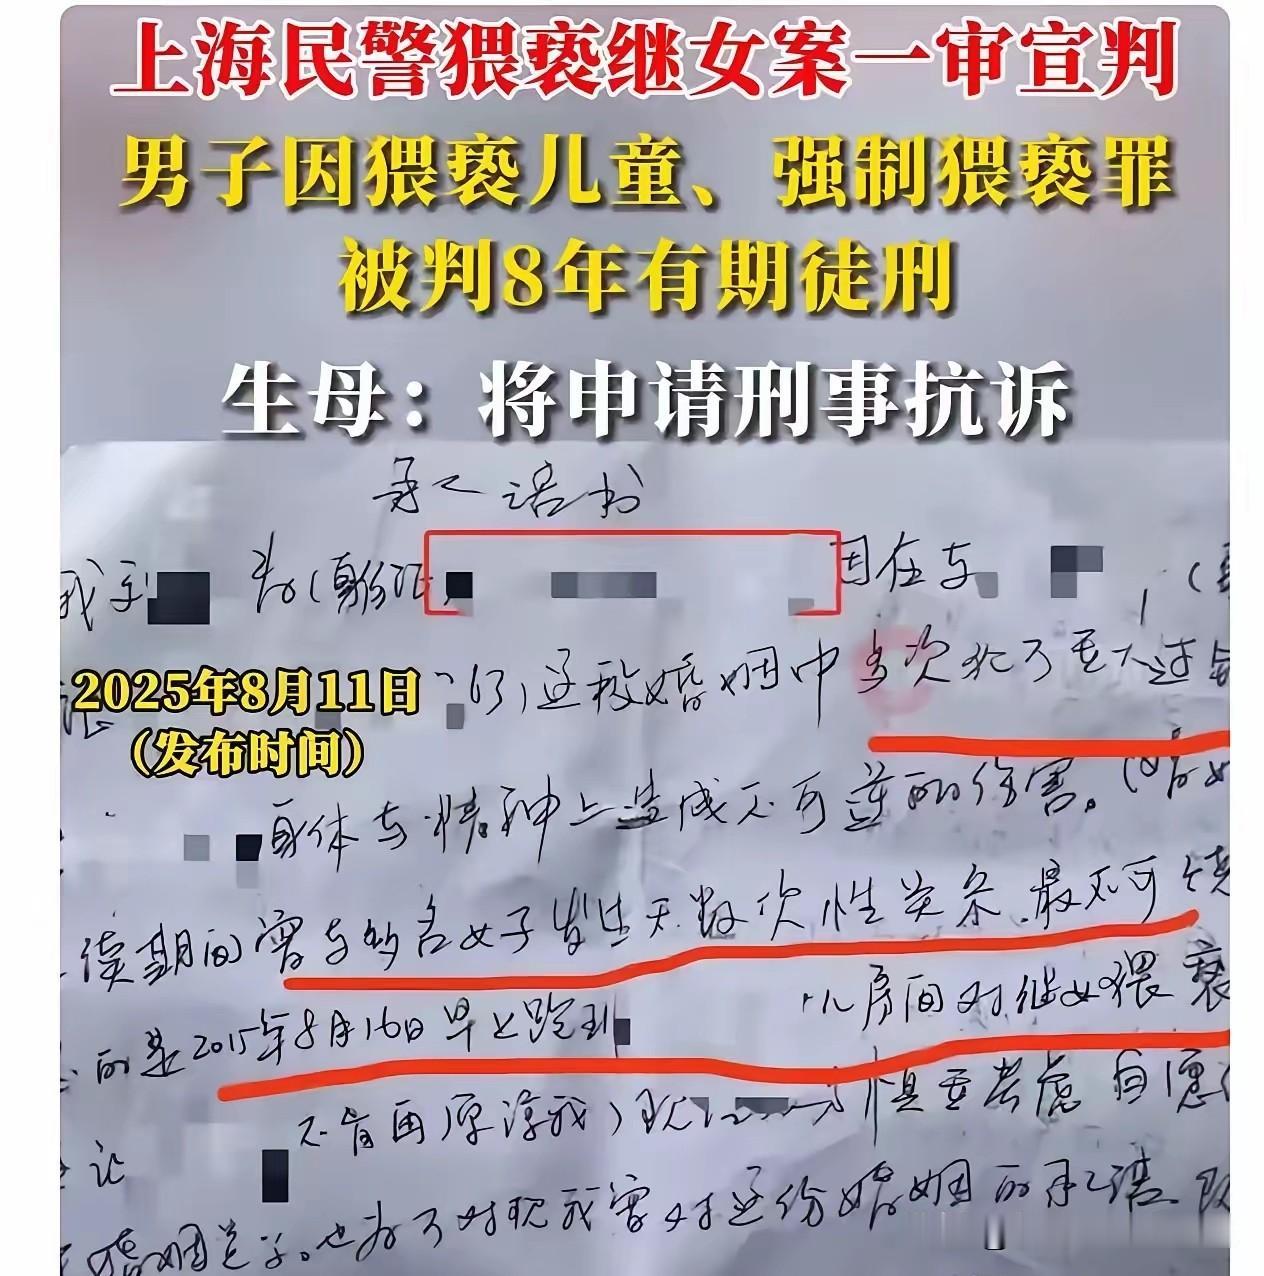 上海民警猥亵继女案一审宣判
男子因猥亵儿童、强制猥亵罪
被判8年有期徒刑
生母：将申请刑事抗诉
承诺书
我 为(身份证 因在与 (
2025年8月11日
(发布时间)
这段婚姻中多次犯了重大过
身体与精神上造成不可逆的伤害。(
续期间曾与多名女子发生无数次性关系，最不可
的是2015年8月16日早上跑到 儿房间对继女猥亵
不肯再原谅我) 慎重考虑自愿
婚姻 也为了对现我曾对这份婚姻的承诺